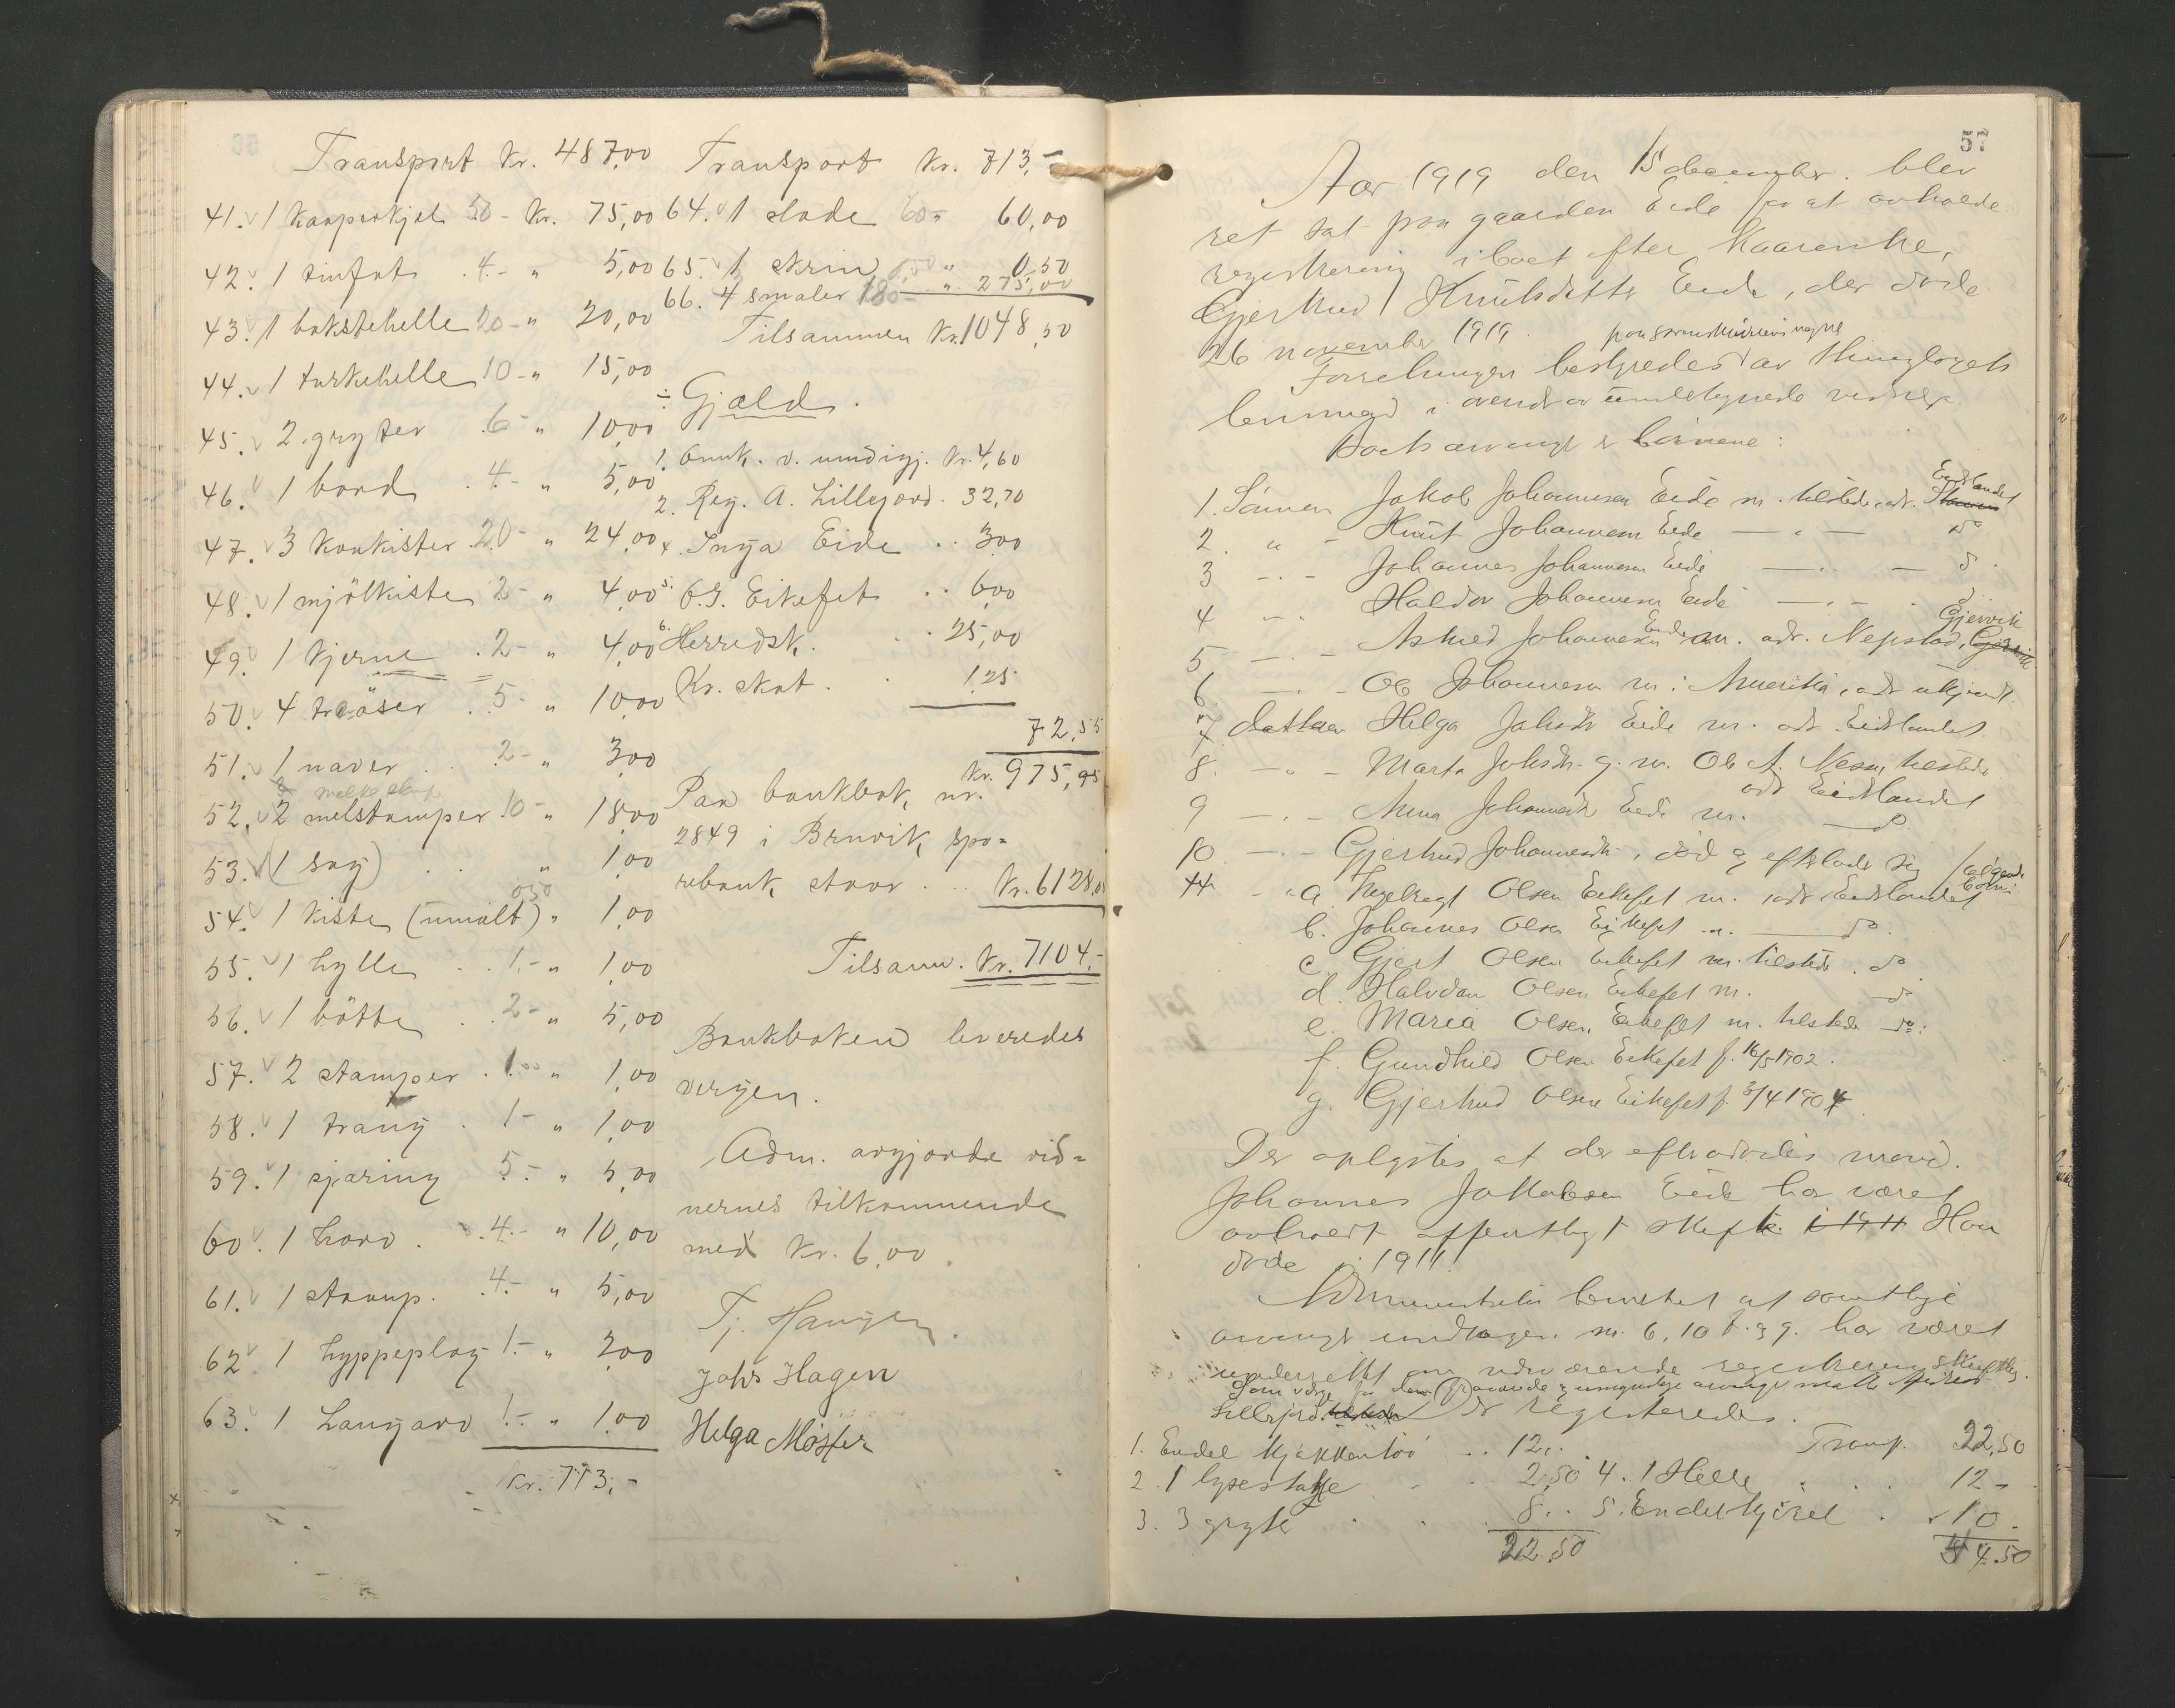 Transport Kr. 487,00
41. 1 kaaperkjel 50- Kr. 75,00
42. 1 tinfat 4.- " 5,00
43. 1 bakstehelle 20- " 20,00
44. 1 turkehelle 10- " 15,00
45. 2 gryter 6- " 10,00
46. 1 bord 4- " 5,00
47. 3 kornkister 20- " 24,00
48. 1 mjölkiste 2- " 4,00
49. 1 kjerne 2- " 4,00
50. 4 tröser 5- " 10,00
51. 1 naver 2- " 3,00
52. 2 melstamper 10- " 18,00
53. (1 sag) " 1,00
54. 1 kiste (umalt) 050 " 1,00
55. 1 hylle 1.- " 1,00
56. 1 bötte 2- " 5,00
57. 2 stamper 1.00 " 1,00
58. 1 trang 1- " 1,00
59. 1 sjæring 5.- " 5,00
60. 1 horv 4.- " 10,00
61. 1 stamp. 4.- " 5,00
62. 1 hyppeplog 1.- " 2,00
63. 1 langarv 1.- " 1,00
Kr. 713,-
Transport Kr. 713,-
64. 1 slade 60- 60,00
65. 1 skrin 0,50 " 0,50
66. 4 smaler 180- " 275,00
Tilsammen Kr. 1048,50
÷ Gjæld.
1. Omk. v. undigj. Kr. 4,60
2. Reg. A. Lillejord. 32,70
4. Inga Eide .. 3,00
5. O. J. Eikefet .. 6,00
6. Herredsk. .. 25,00
Kr. skat . . 1,25
72,55
Kr. 975,95
Paa bankbok nr.
2849 i Bruvik spa-
rebank staar .. Kr. 6128,05
Tilsamm. Kr. 7104,-
Bankboken leveredes
vergen.
Adm. avgjorde vid-
nernes tilkommende
med Kr. 6,00.
Tj. Haugen.
Johs Hagen
Helga Mjøster
57
Aar 1919 den 15 december blev
ret sat paa gaarden Eide for at avholde
registrering i boet efter kaarenke,
Gjertrud Knutsdatter Eide, der döde
26 november 1919.
Forretningen bestyredes av thinglagets
lensmand i overvær av undertegnede vidner.
Boets arvinger er börnene:
1. Sönnen Jakob Johannesen Eide m. tilstede, adr. Eidslandet
2. " - Knut Johannesen Eide — " — do
3 -"- Johannes Johannesen Eide — " — do.
4 -"- Haldor Johannesen Eide — " — do
5 -"- Askild Johannesen Eide m. adr. Nepstad, Gjervik
6. -"- Ole Johannesen m. i Amerika, adr ukjendt.
7. datteren Helga Johsdtr Eide m. adr. Eidslandet
8. -"- Marta Johsdtr g. m. Ole A. Nesse, tilstede
adr Eidslandet
9 -"- Anna Johannesdtr Eide m. — do.
10 -"- Gjertrud Johannesdtr, död og efterlader sig følgende börn:
a. Ingebregt Olsen Eikefet m. adr Eidslandet
b. Johannes Olsen Eikefet m. — do.
c. Gjert Olsen Eikefet m. tilstede. do
d. Halvdan Olsen Eikefet m. — do
e. Maria Olsen Eikefet m. tilstede do.
f. Gundhild Olsen Eikefet f. 16/5 1902.
g. Gjertrud Olsen Eikefet f. 3/4 1904.
Der oplystes at der efter avdödes mand.
Johannes Jakobsen Eide har været
avholdt offentligt skifte. i 1911 Han
döde i 1911.
Administrator bemerket at samtlige
arvinger undtagen nr. 6, 10 f. og g. har været
underrettet om nærværende registrering
Som verge for de fraværende og umyndige arvinger mötte
Lillejord. Der registreredes.
1. Endel kjökkentöi .. 12,.
2. 1 lysestake . . 2,50
3. 3 gryter . . 8..
22.50
Transp. 22,50
4. 1 Helle . . 12-
5. Endel kjörel . . 10.
44.50